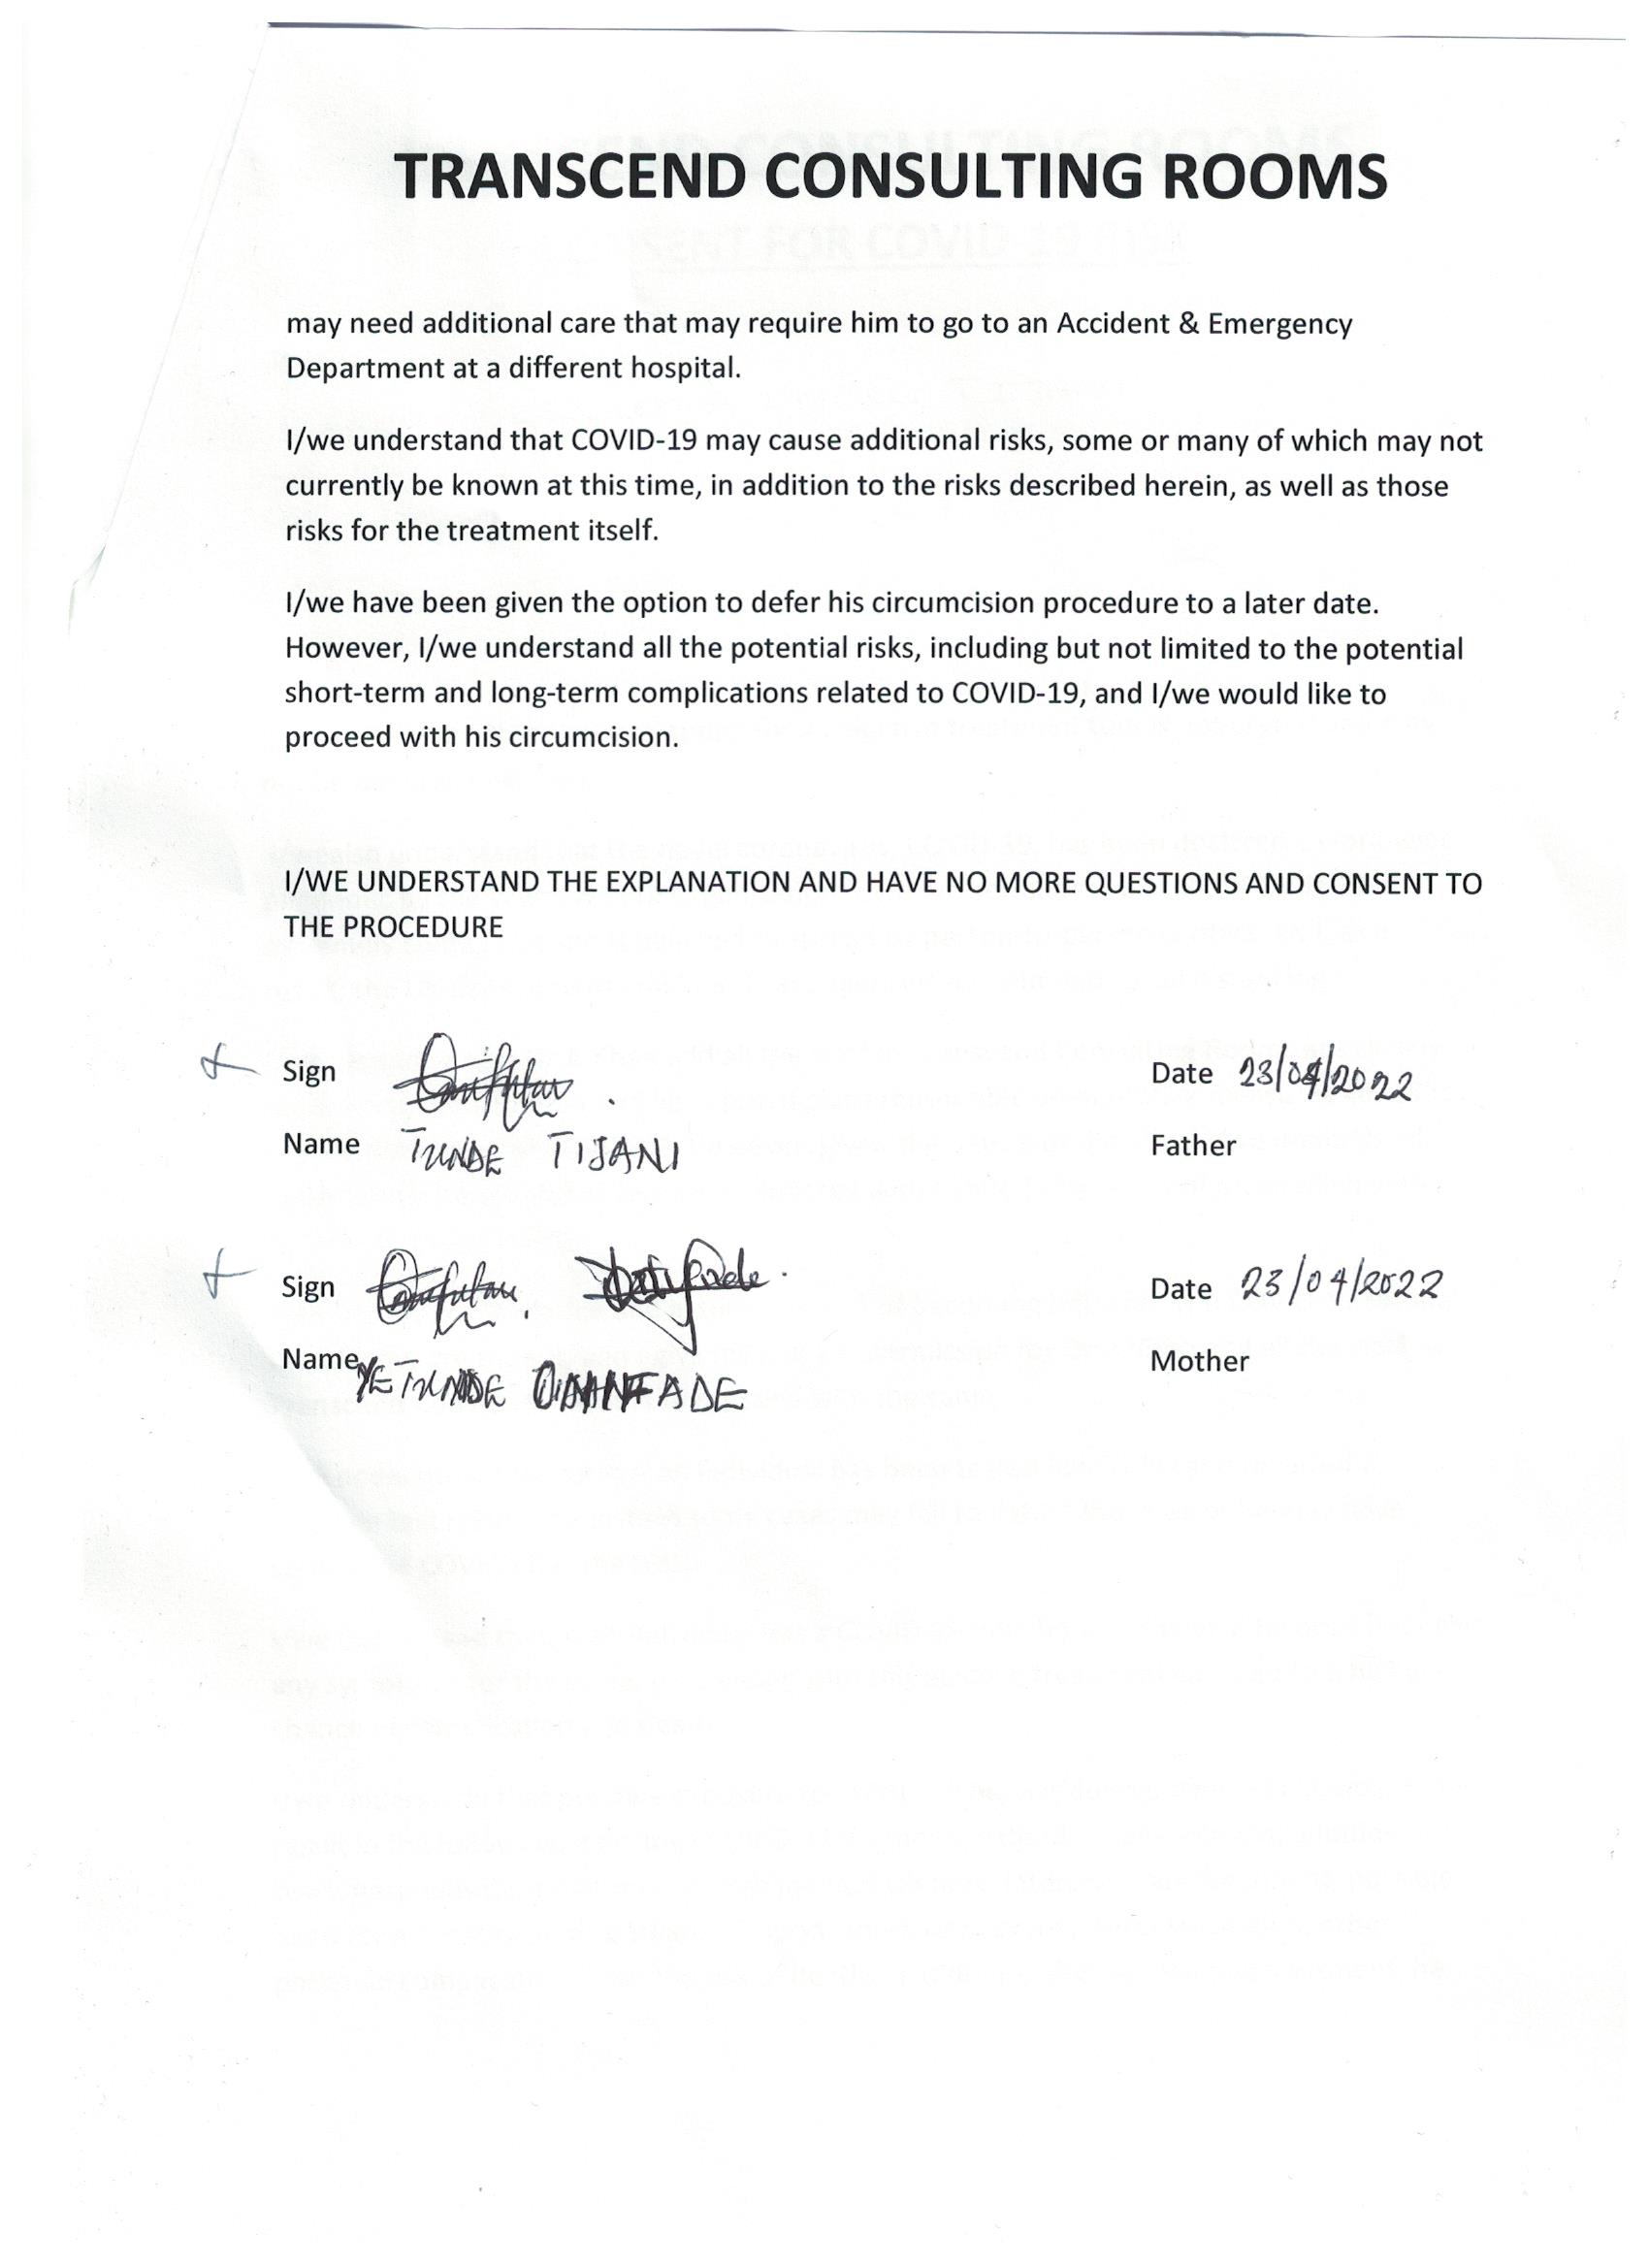 TRANSCEND CONSULTING ROOMS
may need additional care that may require him to go to an Accident & Emergency
Department at a different hospital.
I/we understand that COVID-19 may cause additional risks, some or many of which may not
currently be known at this time, in addition to the risks described herein, as well as those
risks for the treatment itself.
I/we have been given the option to defer his circumcision procedure to a later date.
However, I/we understand all the potential risks, including but not limited to the potential
short-term and long-term complications related to COVID-19, and I/we would like to
proceed with his circumcision.
I/WE UNDERSTAND THE EXPLANATION AND HAVE NO MORE QUESTIONS AND CONSENT TO
THE PROCEDURE
Sign Date 23/04/2022
Name TUNDE TIJANI Father
Sign Date 23/04/2022
Name YETUNDE Mother